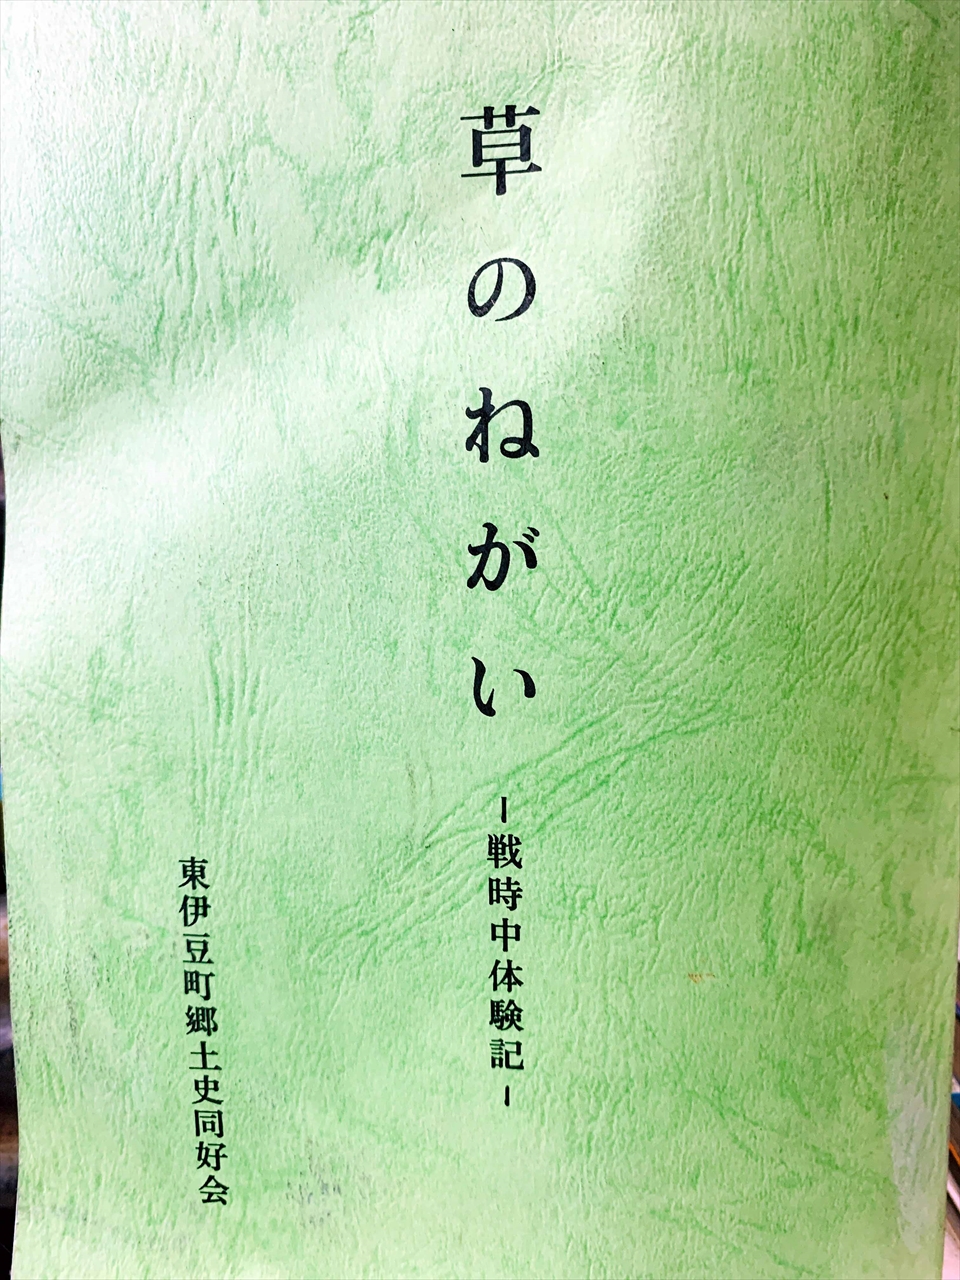 草のねがい
－戦時中体験記－
東伊豆町郷土史同好会